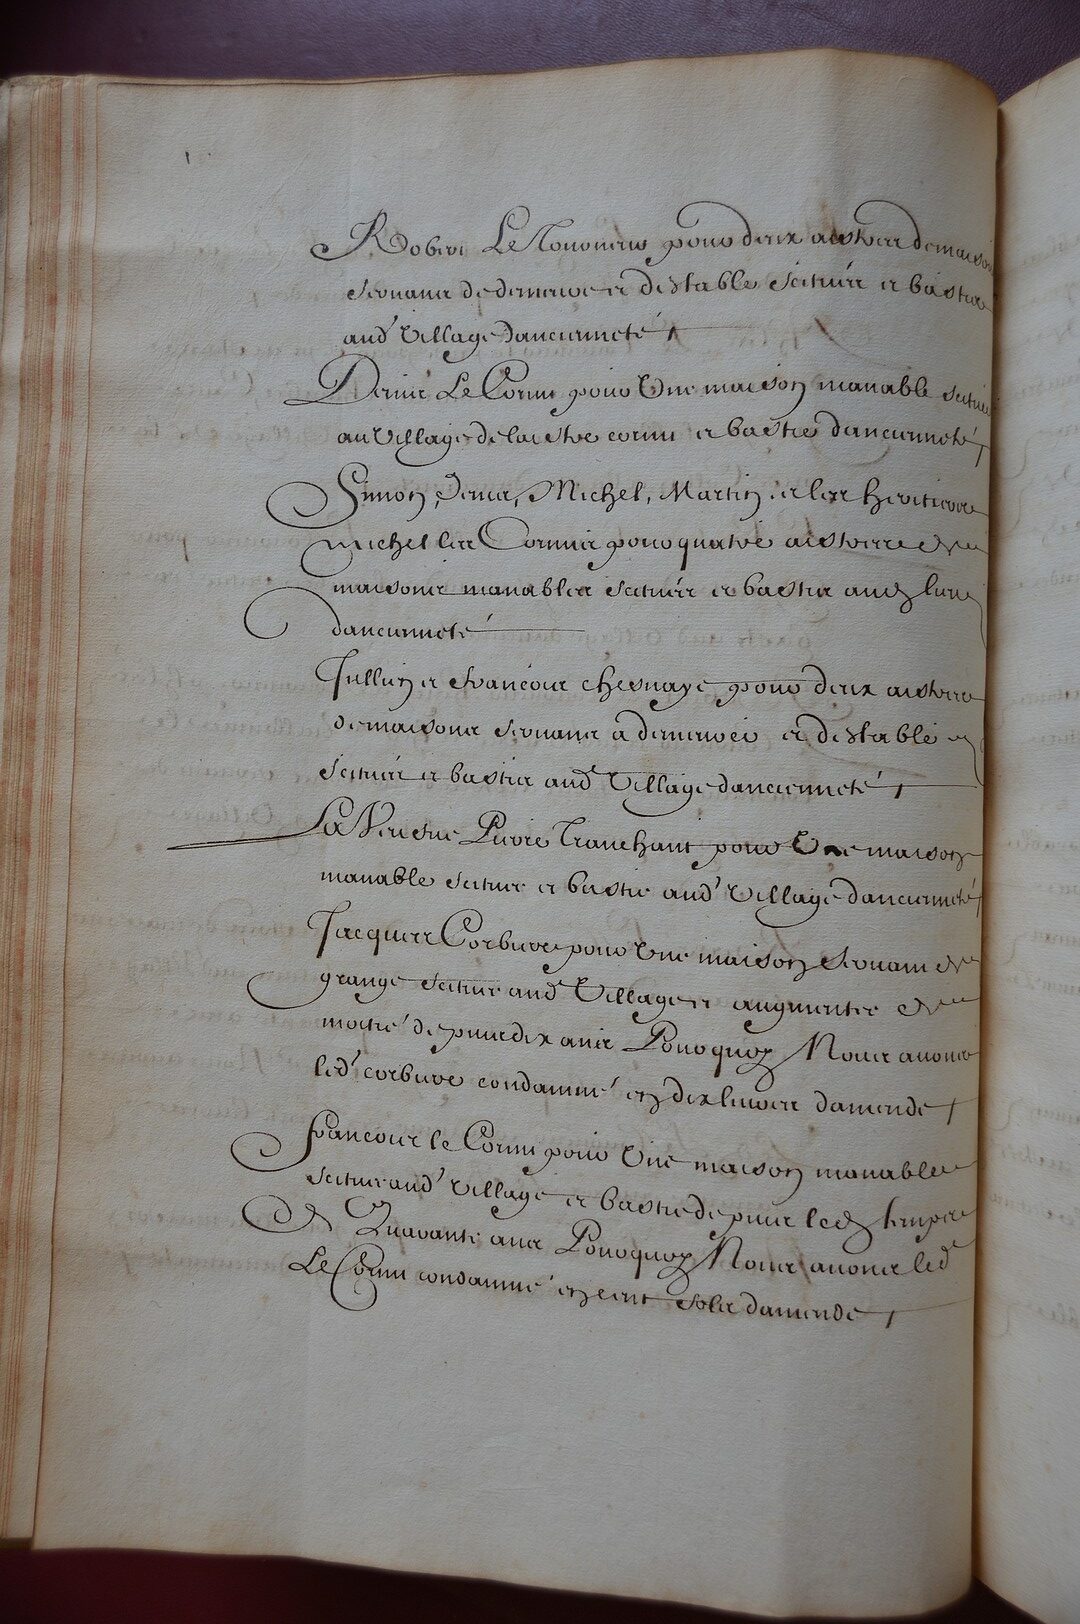 Robert Le Tonnerre pour deux aistres de maison
servant de demeure et destable scituées et bastie
aud village dancienneté
Denis Le Cornu pour Une maison manable scituée
au Village de laistre cornu et bastie dancienneté
Simon, Denis, Michel, Martin et les heritiers
Michel les Cornues pour quatre aistres de
maisones manables scituées et basties aud lieu
dancienneté
Jullien et francois chesnaye pour deux aistres
de maisones servans a demeurer et destable
scituées et basties aud Village dancienneté
La Veufue Pierre Tranchant pour Une maison
manable scituee et bastie aud village dancienneté
Jacques Corbiere pour Une maison servant de
grange scituee aud Village et augmentee de
moitié depuis dix ans Pourquoy Nous avons
led corbiere condamné en dix livres damende
francois le Cornu pour Une maison manable
scituee aud village et bastie depuis led temps
de Quarante ans Pourquoy Nous avons led
Le Cornu condamné en cent sols damende